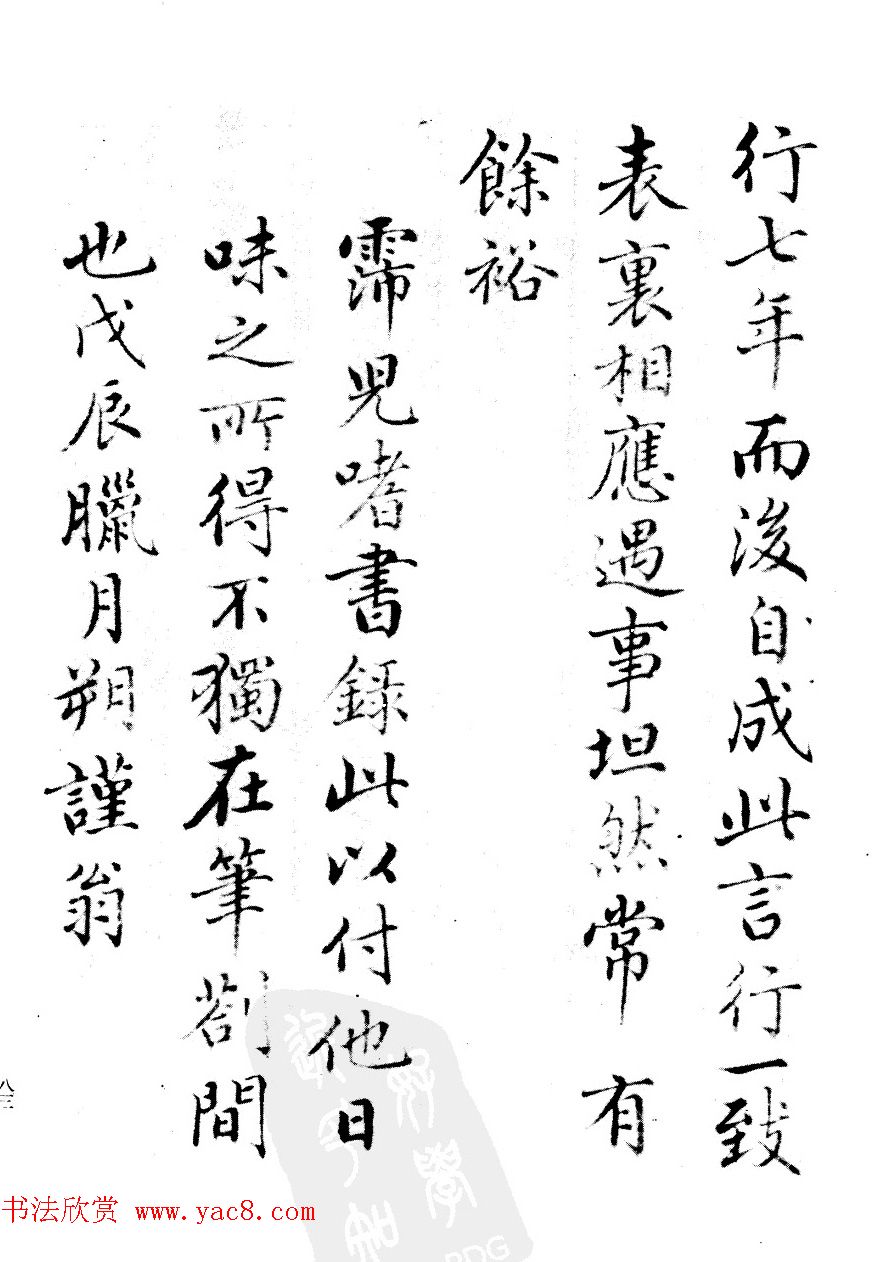 行七年而後自成此言行一致
表裏相應遇事坦然常有
餘裕
霈兒嗜書錄此以付他日
味之所得不獨在筆劄間
也戊辰臘月朔謹翁
八三
书法欣赏 www.yac8.com
PDG